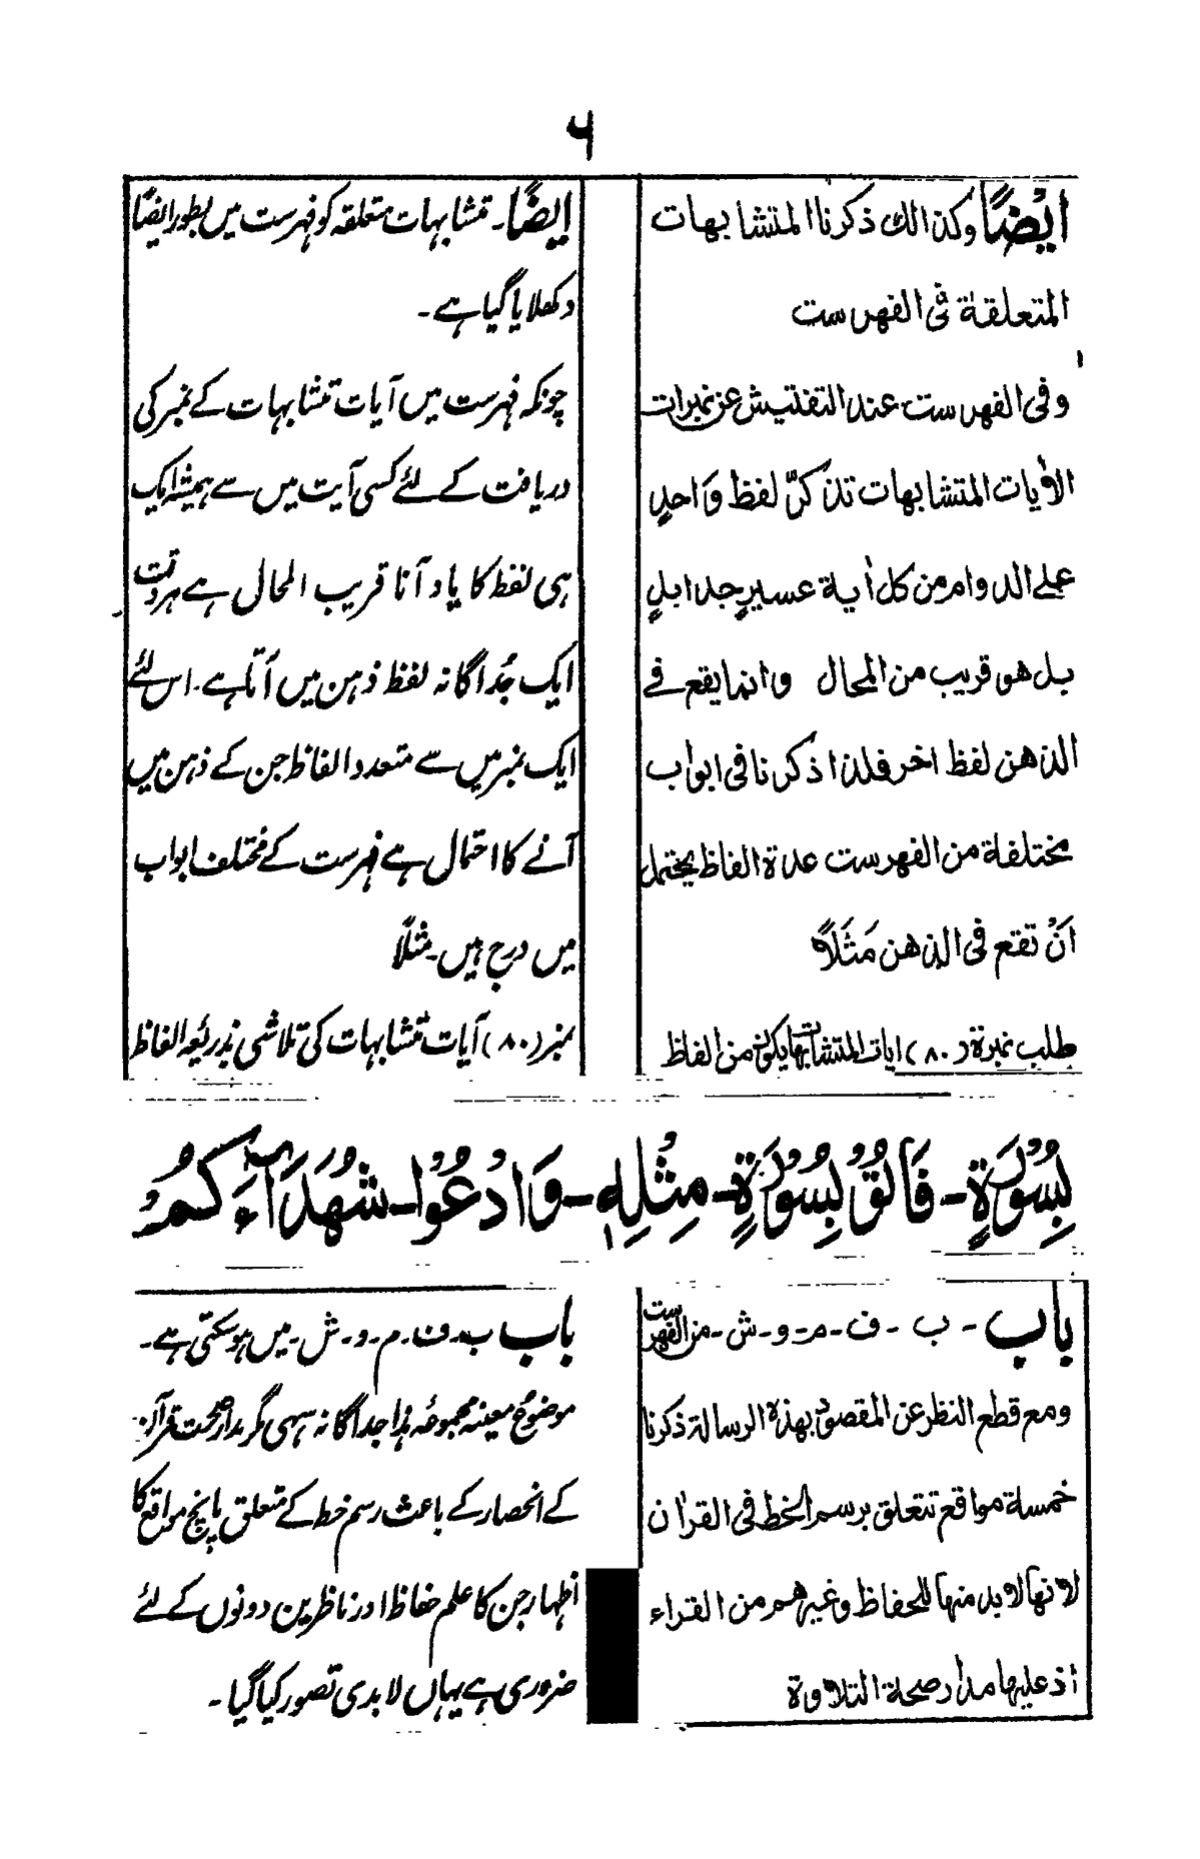 ۶
ایْضًا وکذالك ذکرنا المتشابهات
المتعلقة فی الفهرست
وفی الفهرست عند التفتیش عن نمبرات
الاٰیات المتشابهات تذکّر لفظ وَاحدٍ
علے الدوام من کل اٰیة عسیرٍ جدا بلٍ
بل هو قریب من المحال وانما یقع فے
الذهن لفظ اخر فلذا ذکرنا فی ابواب
مختلفة من الفهرست عدة الفاظ یحتمل
اَنْ تقع فی الذهن مَثَلًا
طلب نمبرة (۸۰) ایات المتشابهات یکون من الفاظ
ایضًا۔ تمشابہات متعلقہ کو فہرست میں بطور ایضًا
دکھلایا گیا ہے۔
چونکہ فہرست میں آیات تمشابہات کے نمبر کی
دریافت کے لئے کسی آیت میں سے ہمیشہ ایک
ہی لفظ کا یاد آنا قریب المحال ہے ہر وقت
ایک جُدا گانہ لفظ ذہن میں آتا ہے۔ اس لئے
ایک نمبر میں سے متعدد الفاظ جن کے ذہن میں
آنے کا احتمال ہے فہرست کے مختلف ابواب
میں درج ہیں۔ مثلًا
نمبر (۸۰) آیات تمشابہات کی تلاشی بذریعہ الفاظ
بِسُوْرَةٍ - فَاْتُوْ بِسُوْرَةٍ - مِثْلِهٖ - وَادْعُوْا - شُهَدَآءَكُمُ
باب - ب - ف - م - و - ش - من الفهرست
ومع قطع النظر عن المقصود بهذه الرسالة ذکرنا
خمسة مواقع تتعلق برسم الخط فی القراٰن
لانها لابد منها للحفاظ وغیرهم من القراء
اذ علیها مدار صحة التلاوة
باب ب۔ ف۔ م۔ و۔ ش۔ میں ہوسکتی ہے۔
موضوع معینہ مجموعہ ہذا جدا گانہ سہی مگر مدار صحت قرآن
کے انحصار کے باعث رسم خط کے متعلق پانچ مواقع کا
اظہار جن کا علم حفاظ اور ناظرین دونوں کے لئے
ضروری ہے یہاں لابدی تصور کیا گیا۔